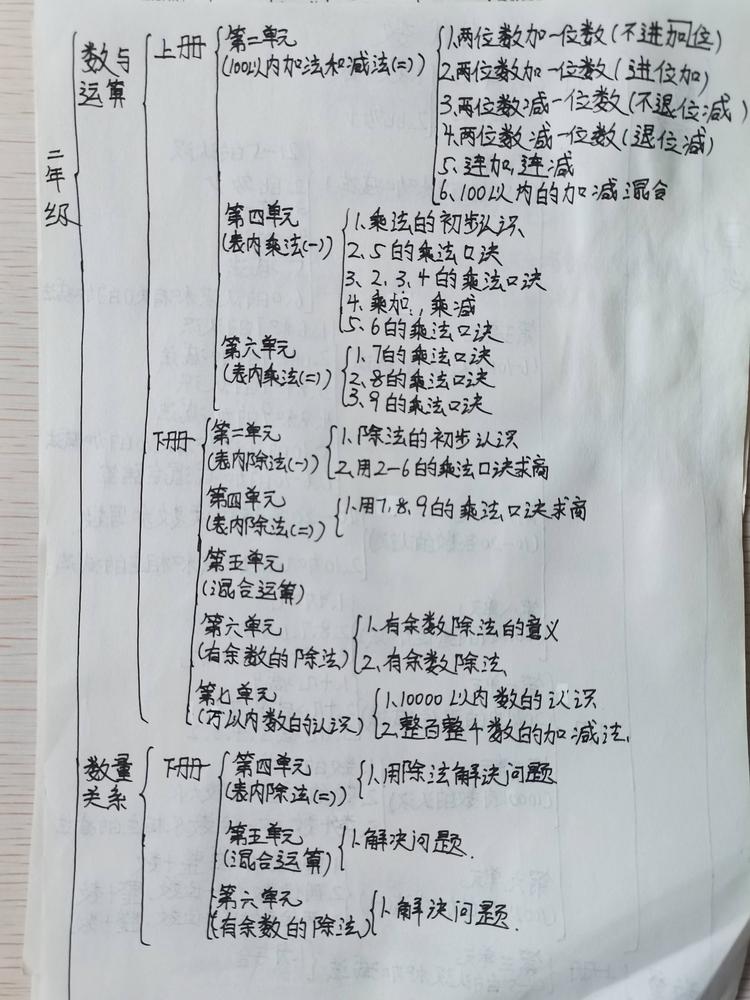 二年级
数与
运算
上册
第二单元
(100以内加法和减法(二))
1.两位数加一位数(不进加位)
2.两位数加一位数(进位加)
3.两位数减一位数(不退位减)
4.两位数减一位数(退位减)
5.连加,连减
6.100以内的加减混合
第四单元
(表内乘法(一))
1.乘法的初步认识
2.5的乘法口诀
3.2、3、4的乘法口诀
4.乘加,乘减
5.6的乘法口诀
第六单元
(表内乘法(二))
1.7的乘法口诀
2.8的乘法口诀
3.9的乘法口诀
下册
第二单元
(表内除法(一))
1.除法的初步认识
2.用2-6的乘法口诀求商
第四单元
(表内除法(二))
1.用7,8,9的乘法口诀求商
第五单元
(混合运算)
第六单元
(有余数的除法)
1.有余数除法的意义
2.有余数除法
第七单元
(万以内数的认识)
1.10000以内数的认识
2.整百整千数的加减法.
数量
关系
下册
第四单元
(表内除法(二))
1.用除法解决问题
第五单元
(混合运算)
1.解决问题.
第六单元
(有余数的除法)
1.解决问题.